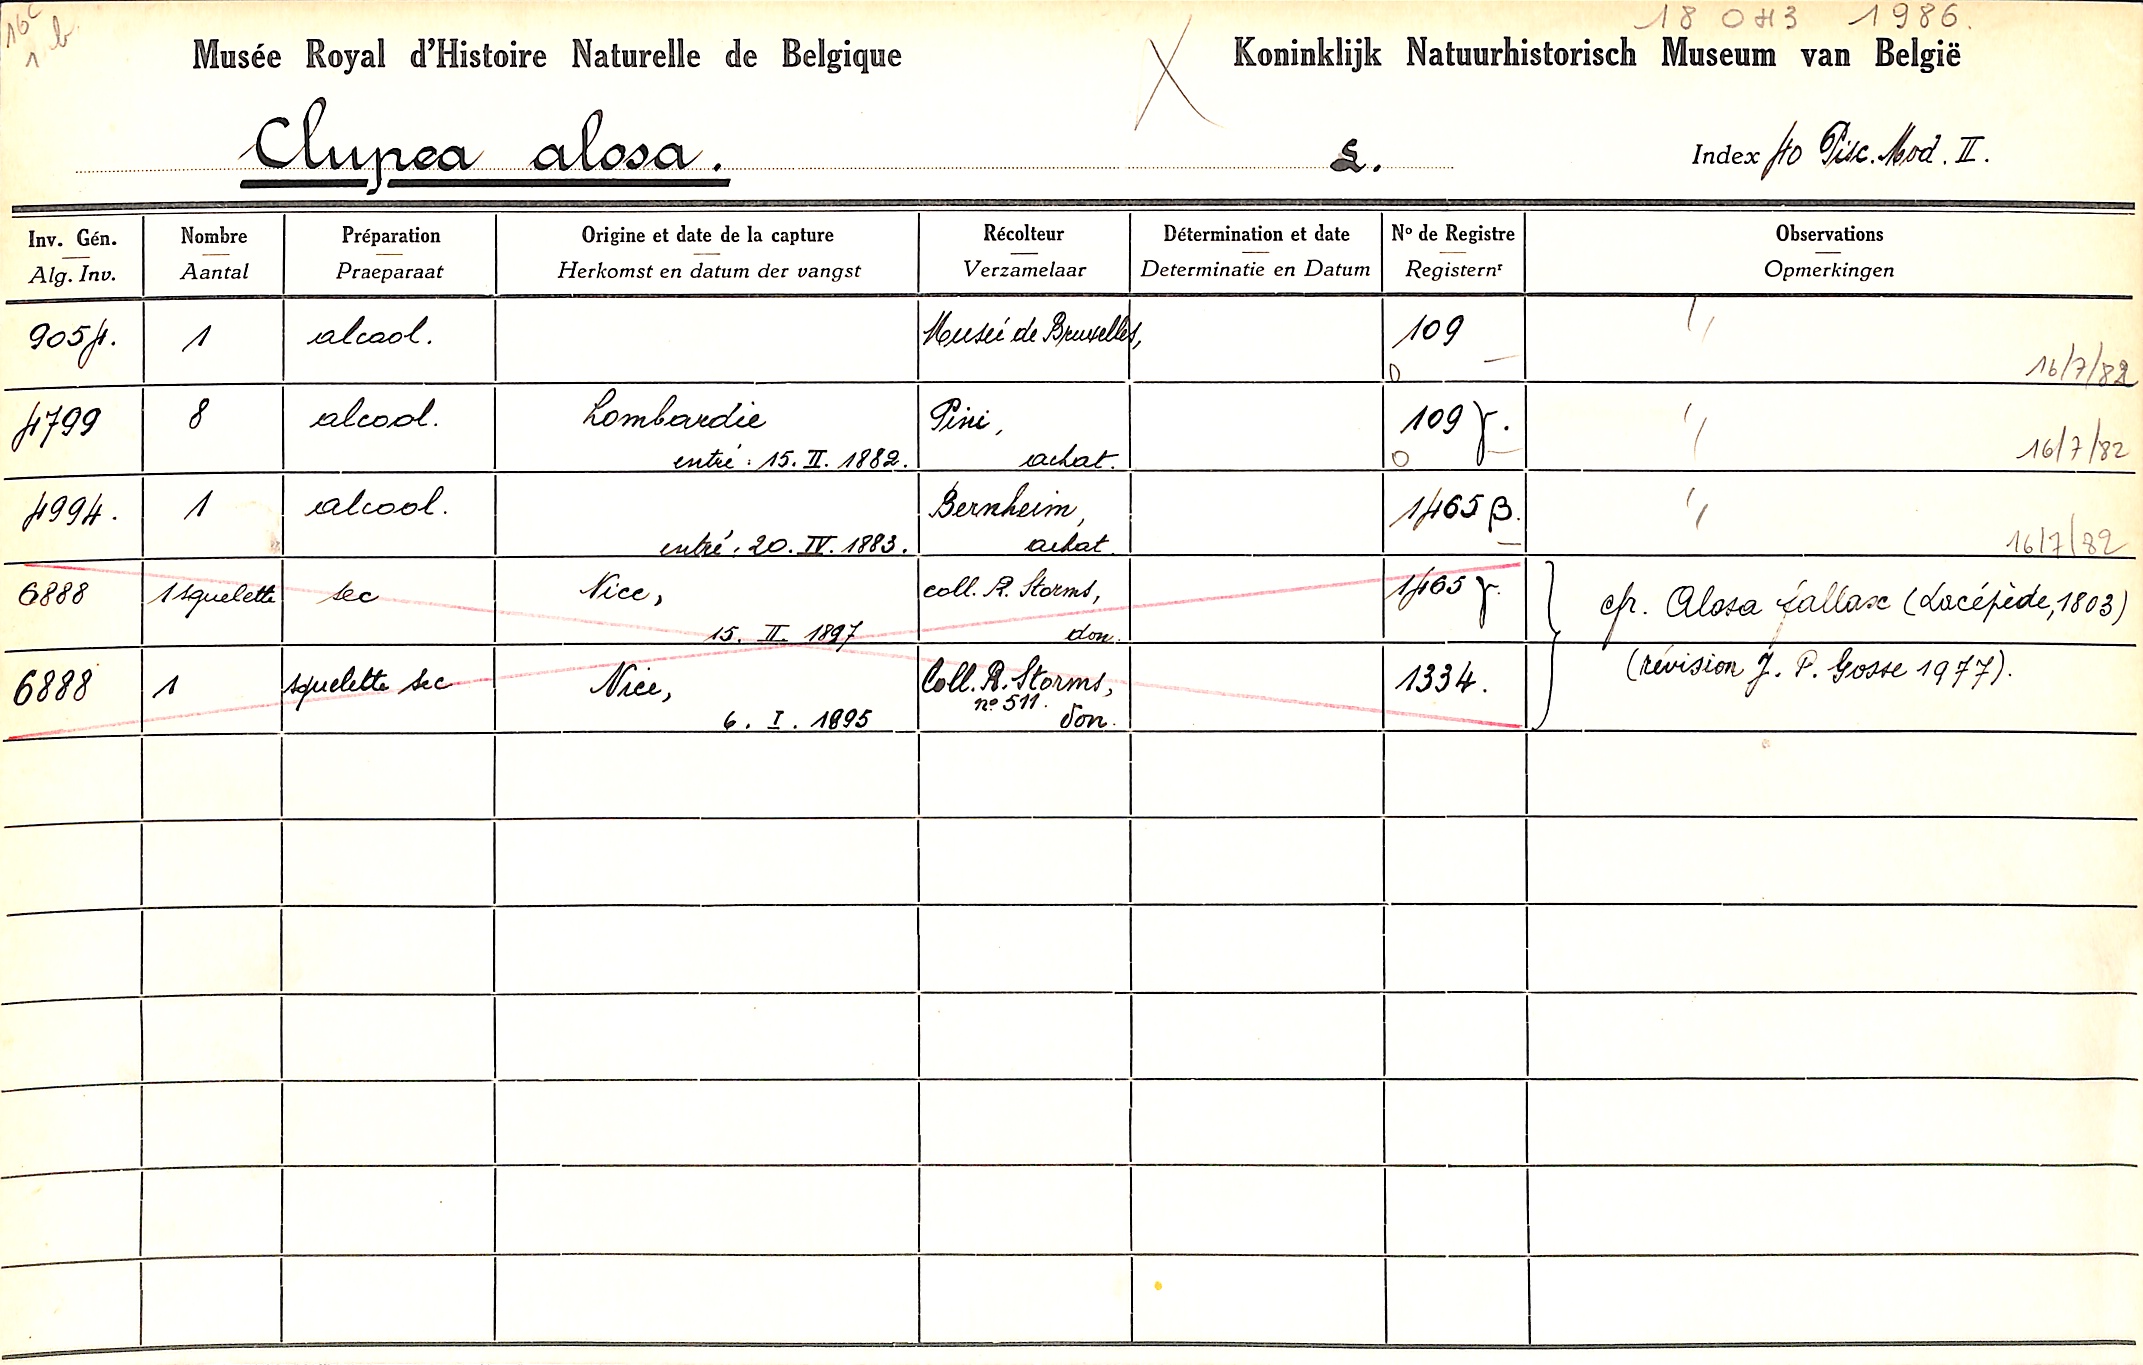 16c
1 b
18 OKT 1986.
Musée Royal d'Histoire Naturelle de Belgique
Koninklijk Natuurhistorisch Museum van België
Clupea alosa. L. Index 40 Pisc. Mod. II.
Inv. Gén. Nombre Préparation Origine et date de la capture Récolteur Détermination et date No de Registre Observations
Alg. Inv. Aantal Praeparaat Herkomst en datum der vangst Verzamelaar Determinatie en Datum Registernr Opmerkingen
9054. 1 alcool. Musée de Bruxelles, 109
0 16/7/82
4799 8 alcool. Lombardie Pini, 109 γ.
entré: 15. II. 1882. achat. 0 16/7/82
4994. 1 alcool. Bernheim, 1465 β.
entré: 20. IV. 1883. achat. 16/7/82
6888 1 squelette sec Nice, coll. R. Storms, 1465 γ. cfr. Alosa fallax (Lacépède, 1803)
15. II. 1897 don.
6888 1 squelette sec Nice, Coll. R. Storms, 1334. (révision J. P. Gosse 1977).
no 511.
6. I. 1895 don.